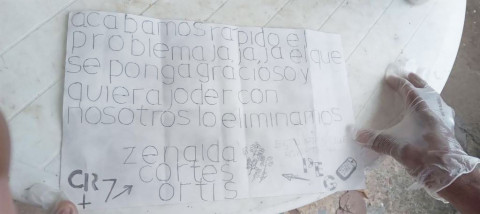 acabamos rapido el
problema jajaja el que
se ponga gracioso y
quiera joder con
nosotros lo eliminamos
zenaida
cortes
ortis